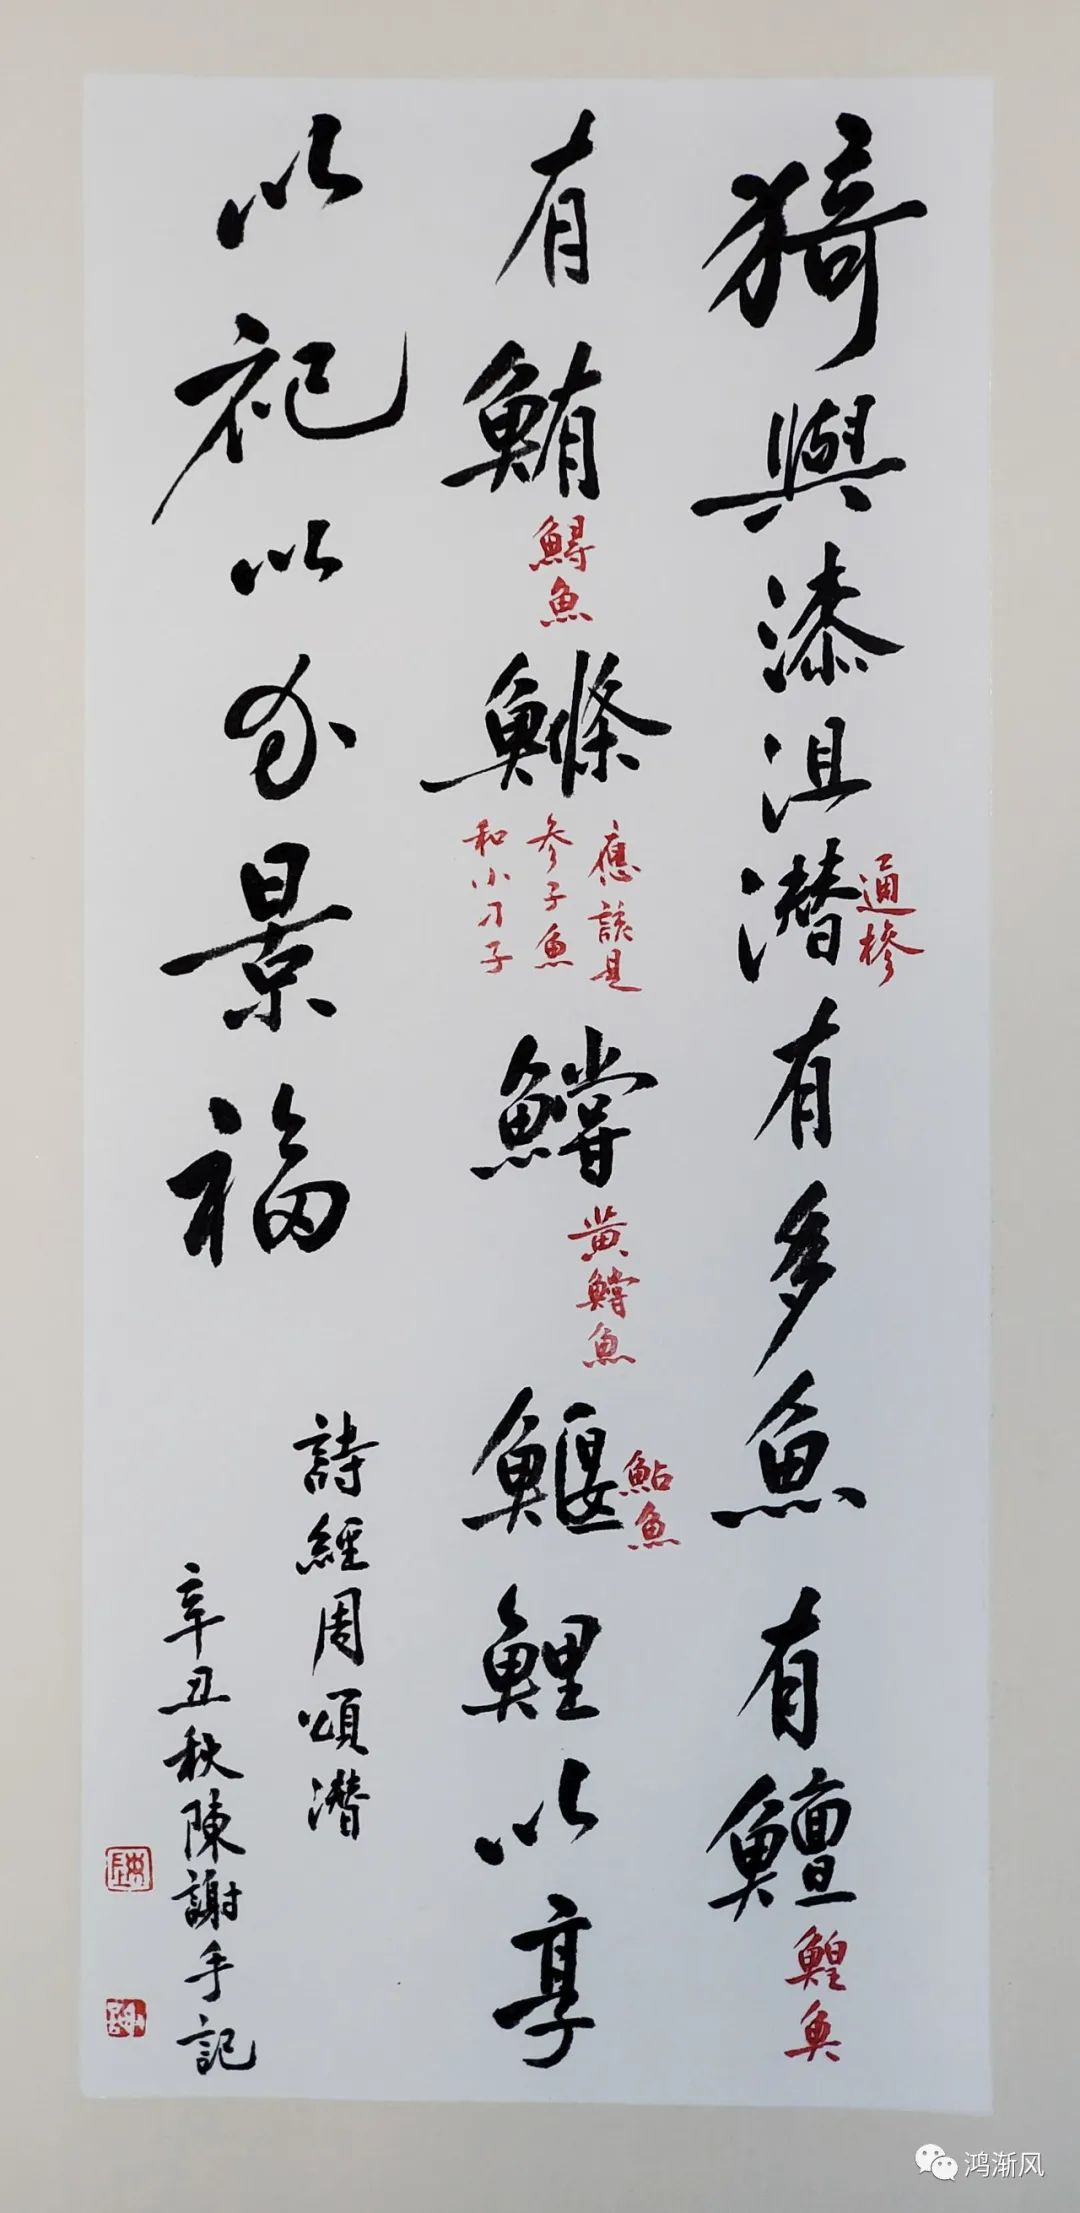 猗與漆沮潛有多魚有鱣
通椮
鰉魚
有鮪鰷鱨鰋鯉以享
鱘魚
應該是
參子魚
和小刁子
黄鱨魚
鮎魚
以祀以介景福
詩經周頌潛
辛丑秋陳謝手記
鸿渐风